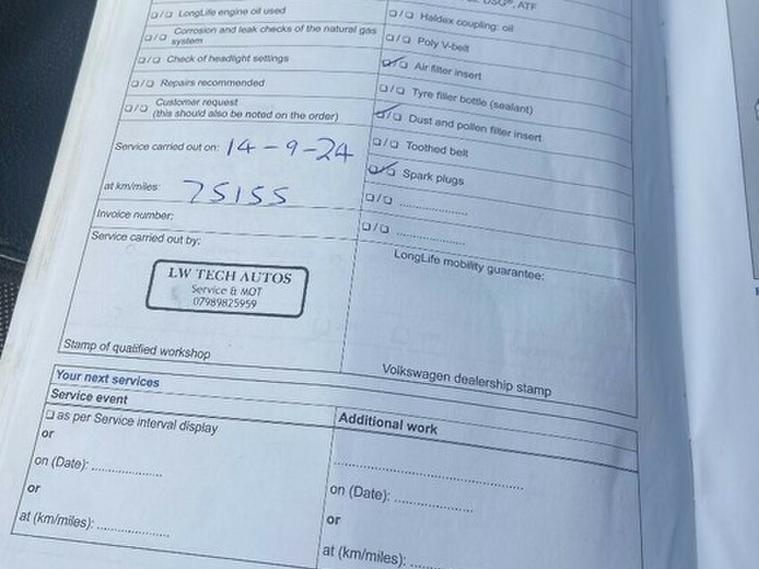 DSG®, ATF
❏/❏ LongLife engine oil used
❏/❏ Corrosion and leak checks of the natural gas
system
❏/❏ Check of headlight settings
❏/❏ Repairs recommended
❏/❏ Customer request
(this should also be noted on the order)
❏/❏ Haldex coupling: oil
❏/❏ Poly V-belt
❏/❏ Air filter insert
❏/❏ Tyre filler bottle (sealant)
❏/❏ Dust and pollen filter insert
❏/❏ Toothed belt
❏/❏ Spark plugs
❏/❏ ....................
❏/❏ ....................
Service carried out on: 14-9-24
at km/miles: 75155
Invoice number:
Service carried out by:
LW TECH AUTOS
Service & MOT
07989825959
Stamp of qualified workshop
LongLife mobility guarantee:
Volkswagen dealership stamp
Your next services
Service event
❏ as per Service interval display
or
on (Date): ....................
or
at (km/miles): ....................
Additional work
....................
on (Date): ....................
or
at (km/miles): ....................